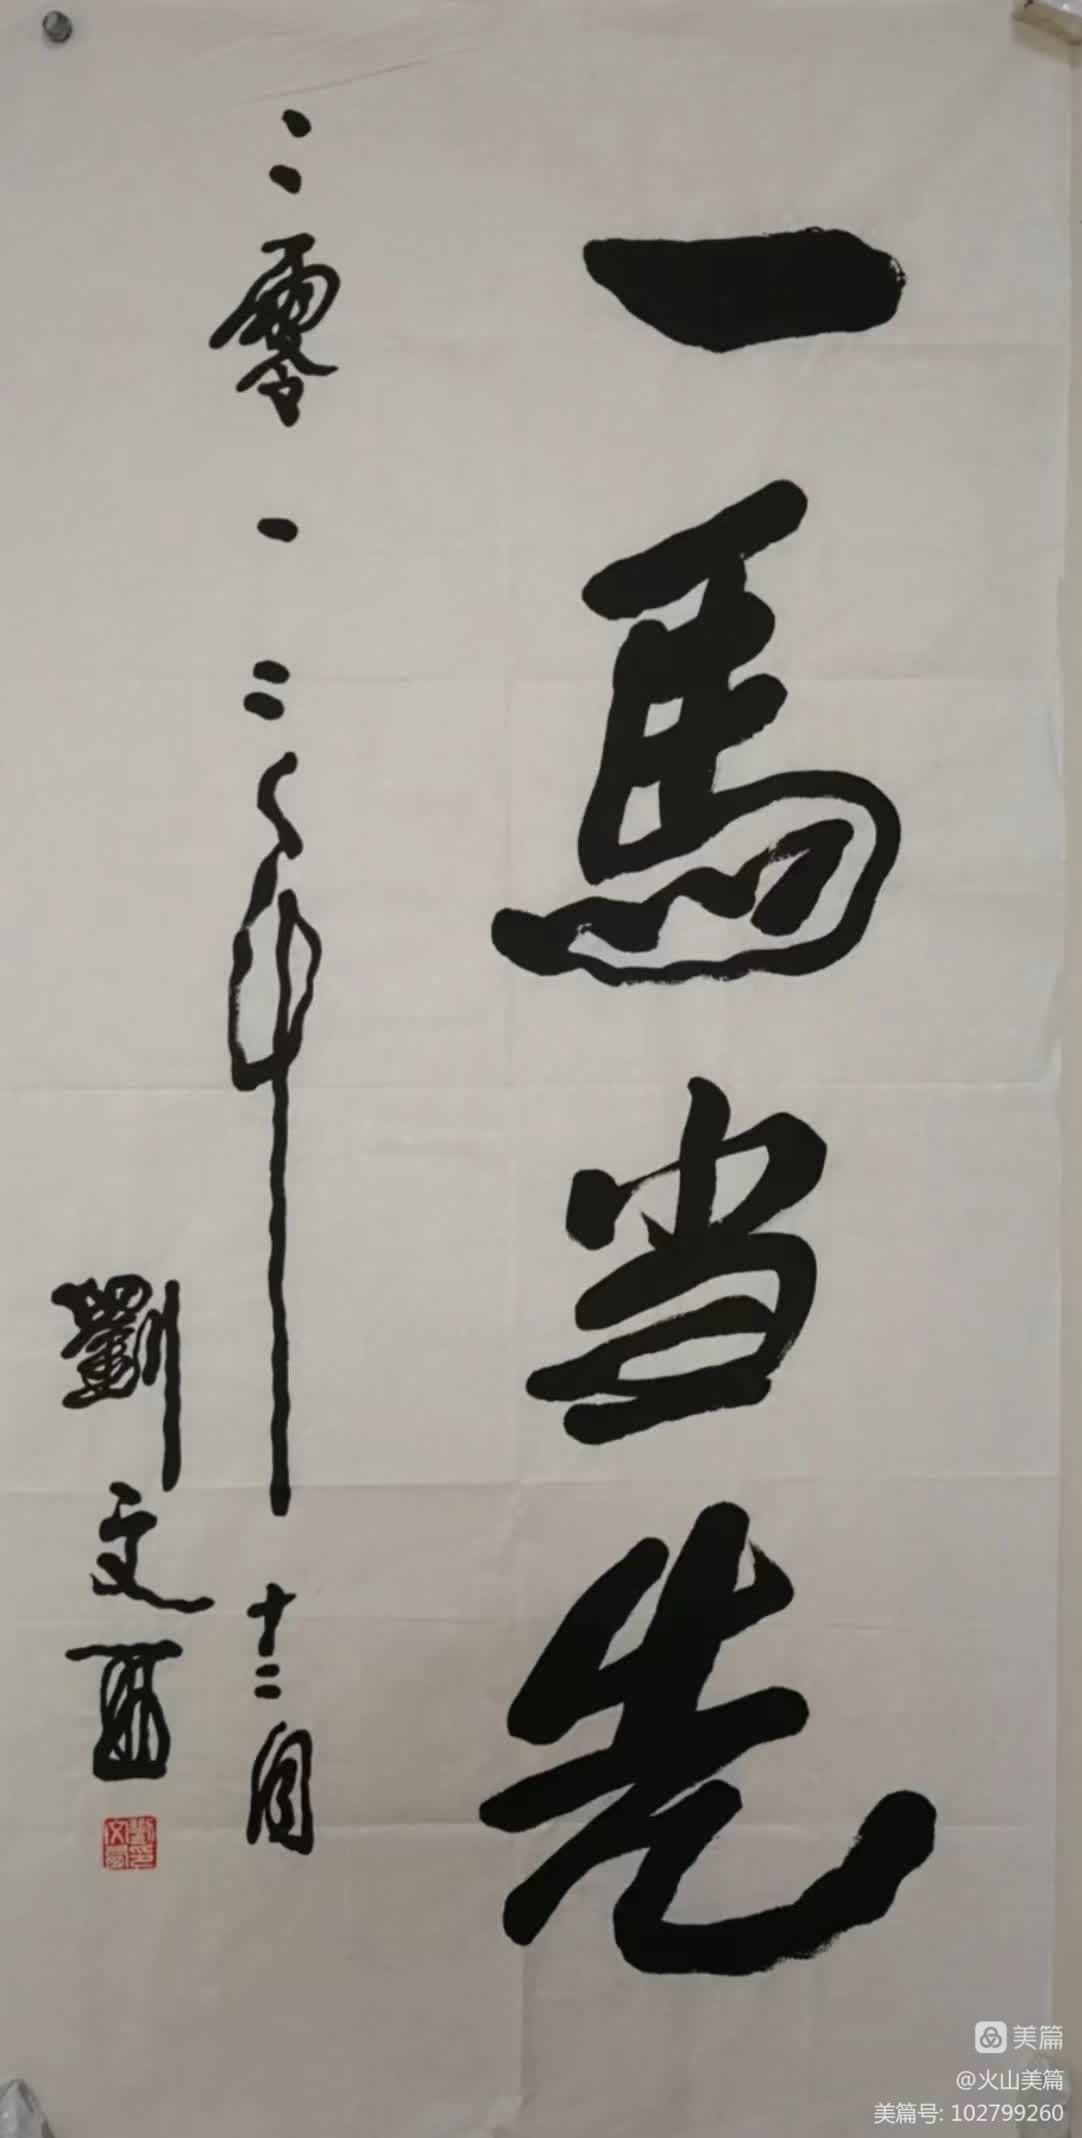 一馬当先
二零一二年十二月
劉文西
美篇
@火山美篇
美篇号: 102799260